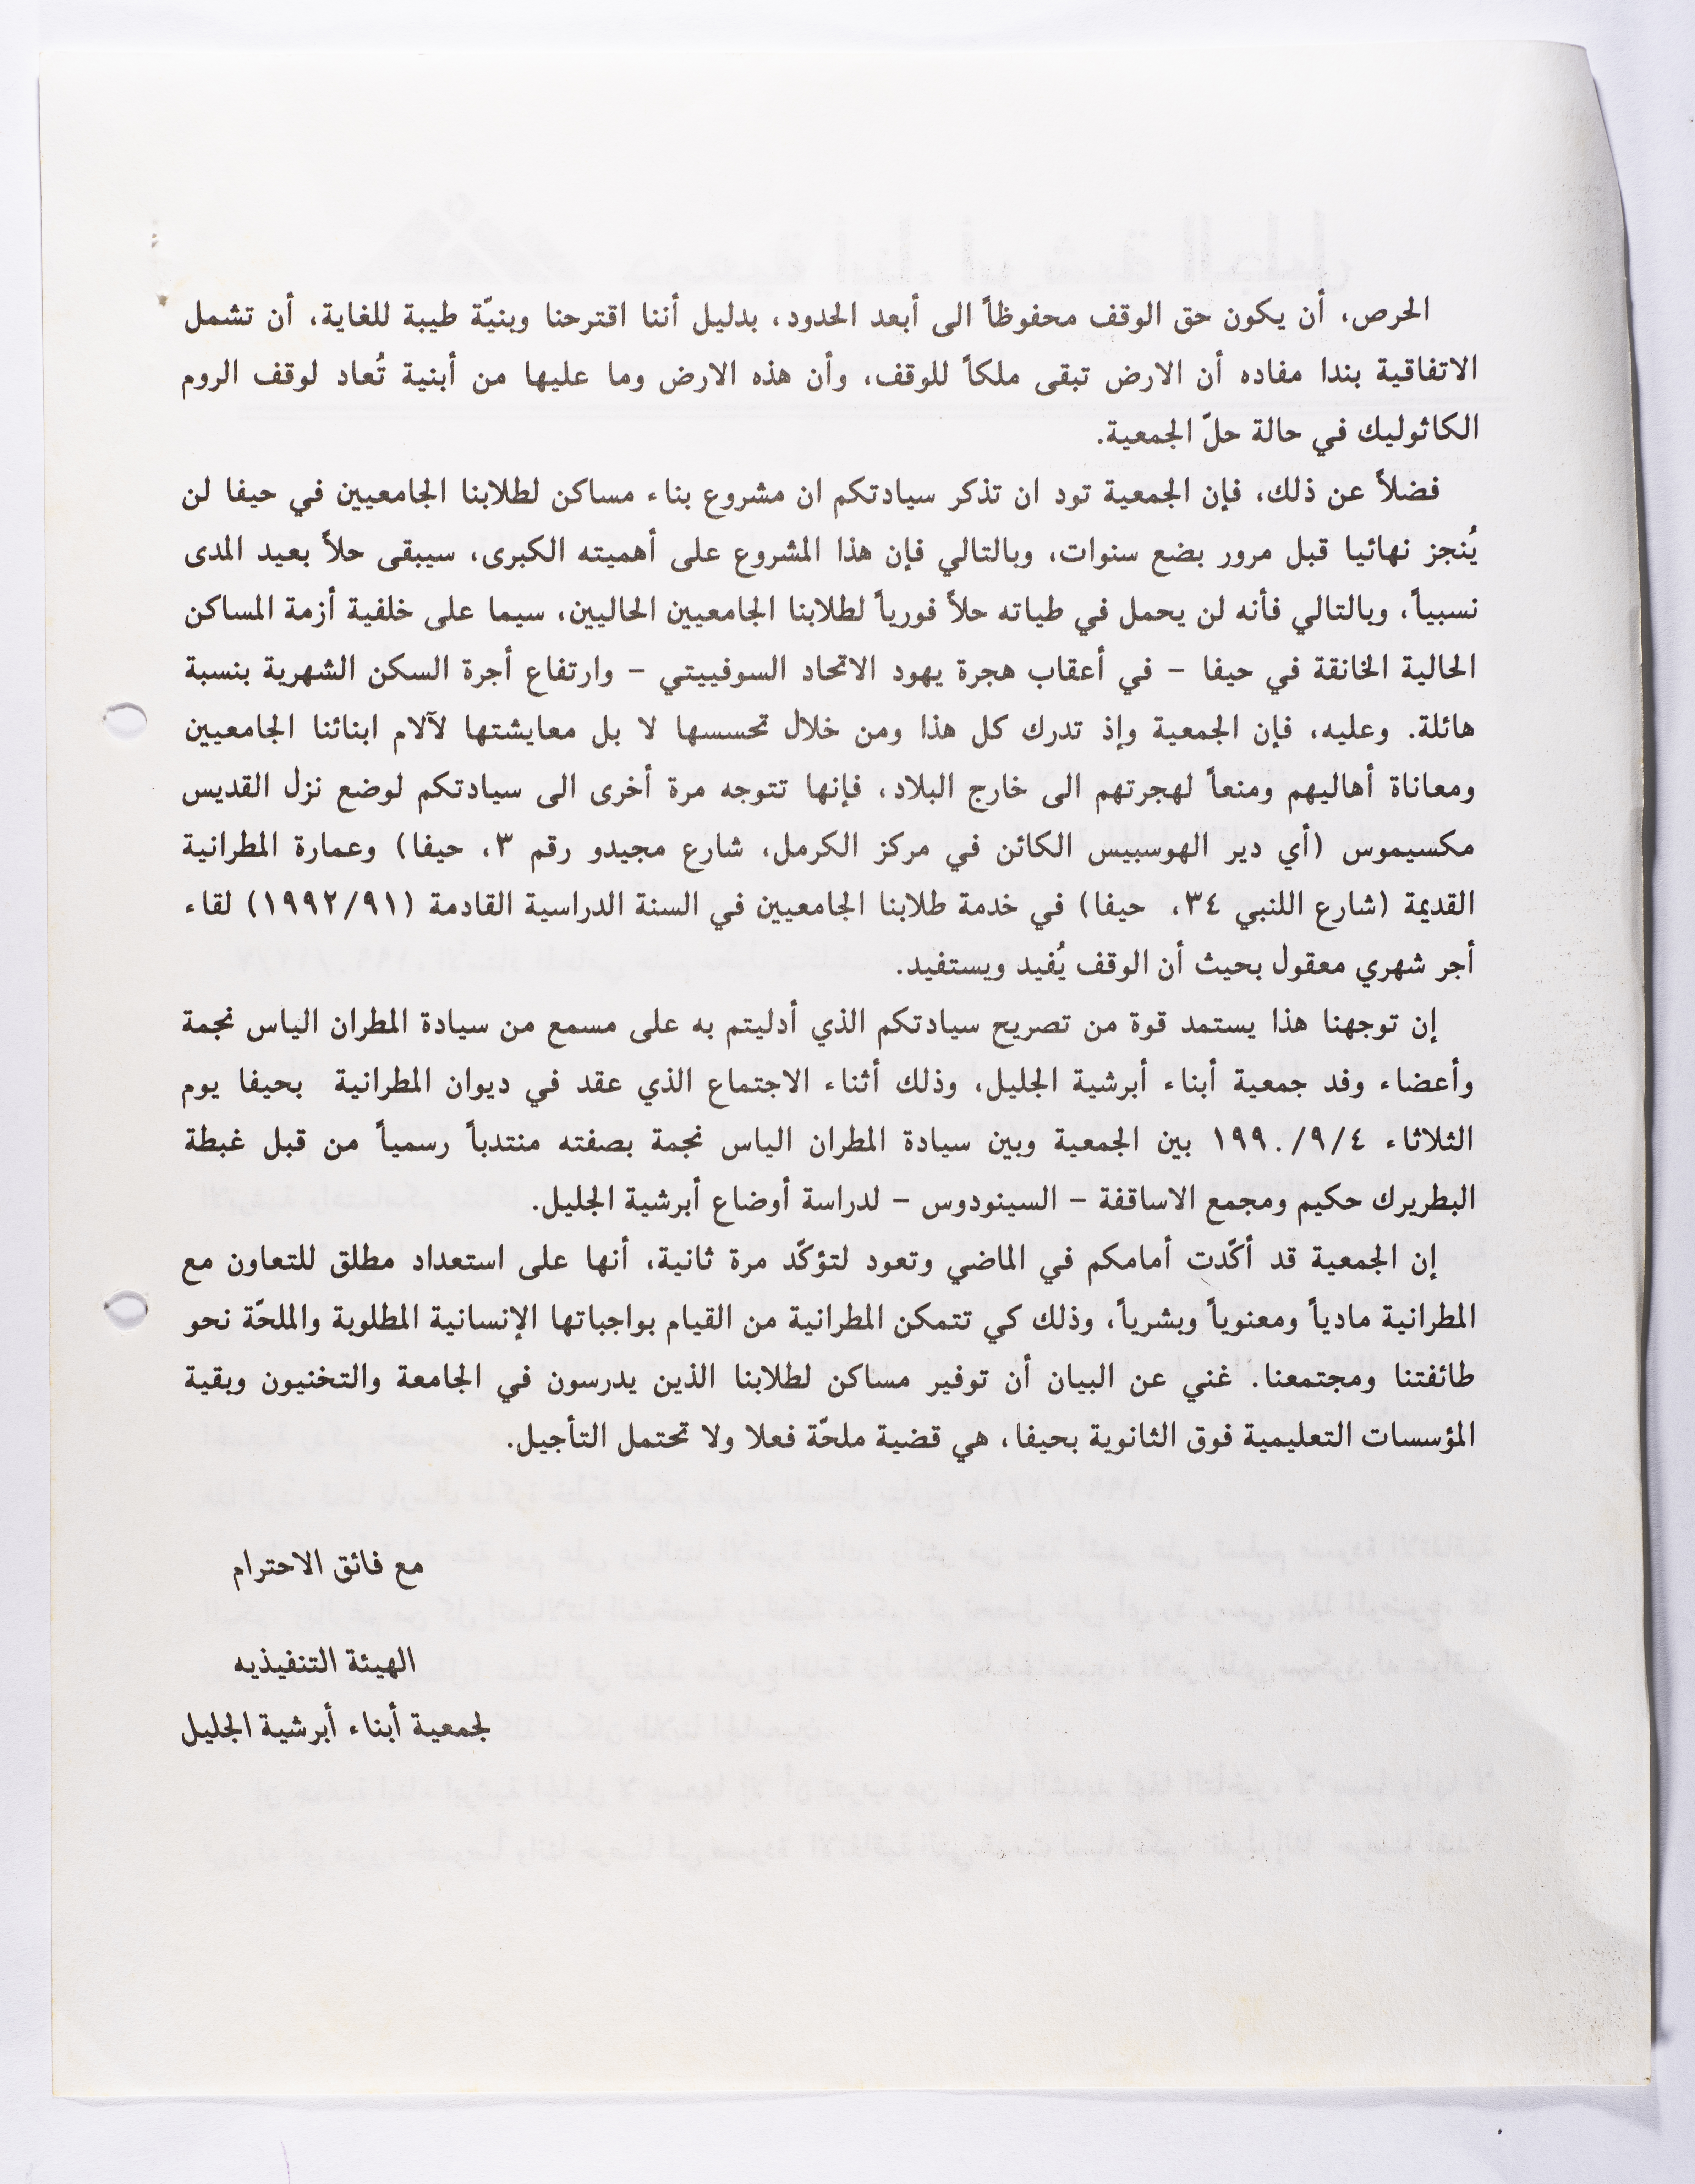 الحرص، أن يكون حق الوقف محفوظاً الى أبعد الحدود، بدليل أننا اقترحنا وبنيّة طيبة للغاية، أن تشمل
الاتفاقية بندا مفاده أن الارض تبقى ملكاً للوقف، وأن هذه الارض وما عليها من أبنية تُعاد لوقف الروم
الكاثوليك في حالة حلّ الجمعية.
فضلاً عن ذلك، فإن الجمعية تود ان تذكر سيادتكم ان مشروع بناء مساكن لطلابنا الجامعيين في حيفا لن
يُنجز نهائيا قبل مرور بضع سنوات، وبالتالي فإن هذا المشروع على أهميته الكبرى، سيبقى حلاً بعيد المدى
نسبياً، وبالتالي فأنه لن يحمل في طياته حلاً فورياً لطلابنا الجامعيين الحاليين، سيما على خلفية أزمة المساكن
الحالية الخانقة في حيفا - في أعقاب هجرة يهود الاتحاد السوفييتي - وارتفاع أجرة السكن الشهرية بنسبة
هائلة. وعليه، فإن الجمعية وإذ تدرك كل هذا ومن خلال تحسسها لا بل معايشتها لآلام ابنائنا الجامعيين
ومعاناة أهاليهم ومنعاً لهجرتهم الى خارج البلاد، فإنها تتوجه مرة أخرى الى سيادتكم لوضع نزل القديس
مكسيموس (أي دير الهوسبيس الكائن في مركز الكرمل، شارع مجيدو رقم ٣، حيفا) وعمارة المطرانية
القديمة (شارع اللنبي ٣٤، حيفا) في خدمة طلابنا الجامعيين في السنة الدراسية القادمة (١٩٩٢/٩١) لقاء
أجر شهري معقول بحيث أن الوقف يُفيد ويستفيد.
إن توجهنا هذا يستمد قوة من تصريح سيادتكم الذي أدليتم به على مسمع من سيادة المطران الياس نجمة
وأعضاء وفد جمعية أبناء أبرشية الجليل، وذلك أثناء الاجتماع الذي عقد في ديوان المطرانية بحيفا يوم
الثلاثاء ١٩٩٠/٩/٤ بين الجمعية وبين سيادة المطران الياس نجمة بصفته منتدباً رسمياً من قبل غبطة
البطريرك حكيم ومجمع الاساقفة - السينودوس - لدراسة أوضاع أبرشية الجليل.
إن الجمعية قد أكّدت أمامكم في الماضي وتعود لتؤكّد مرة ثانية، أنها على استعداد مطلق للتعاون مع
المطرانية مادياً ومعنوياً وبشرياً، وذلك كي تتمكن المطرانية من القيام بواجباتها الإنسانية المطلوبة والملحّة نحو
طائفتنا ومجتمعنا. غني عن البيان أن توفير مساكن لطلابنا الذين يدرسون في الجامعة والتخنيون وبقية
المؤسسات التعليمية فوق الثانوية بحيفا، هي قضية ملحّة فعلا ولا تحتمل التأجيل.
مع فائق الاحترام
الهيئة التنفيذيه
لجمعية أبناء أبرشية الجليل